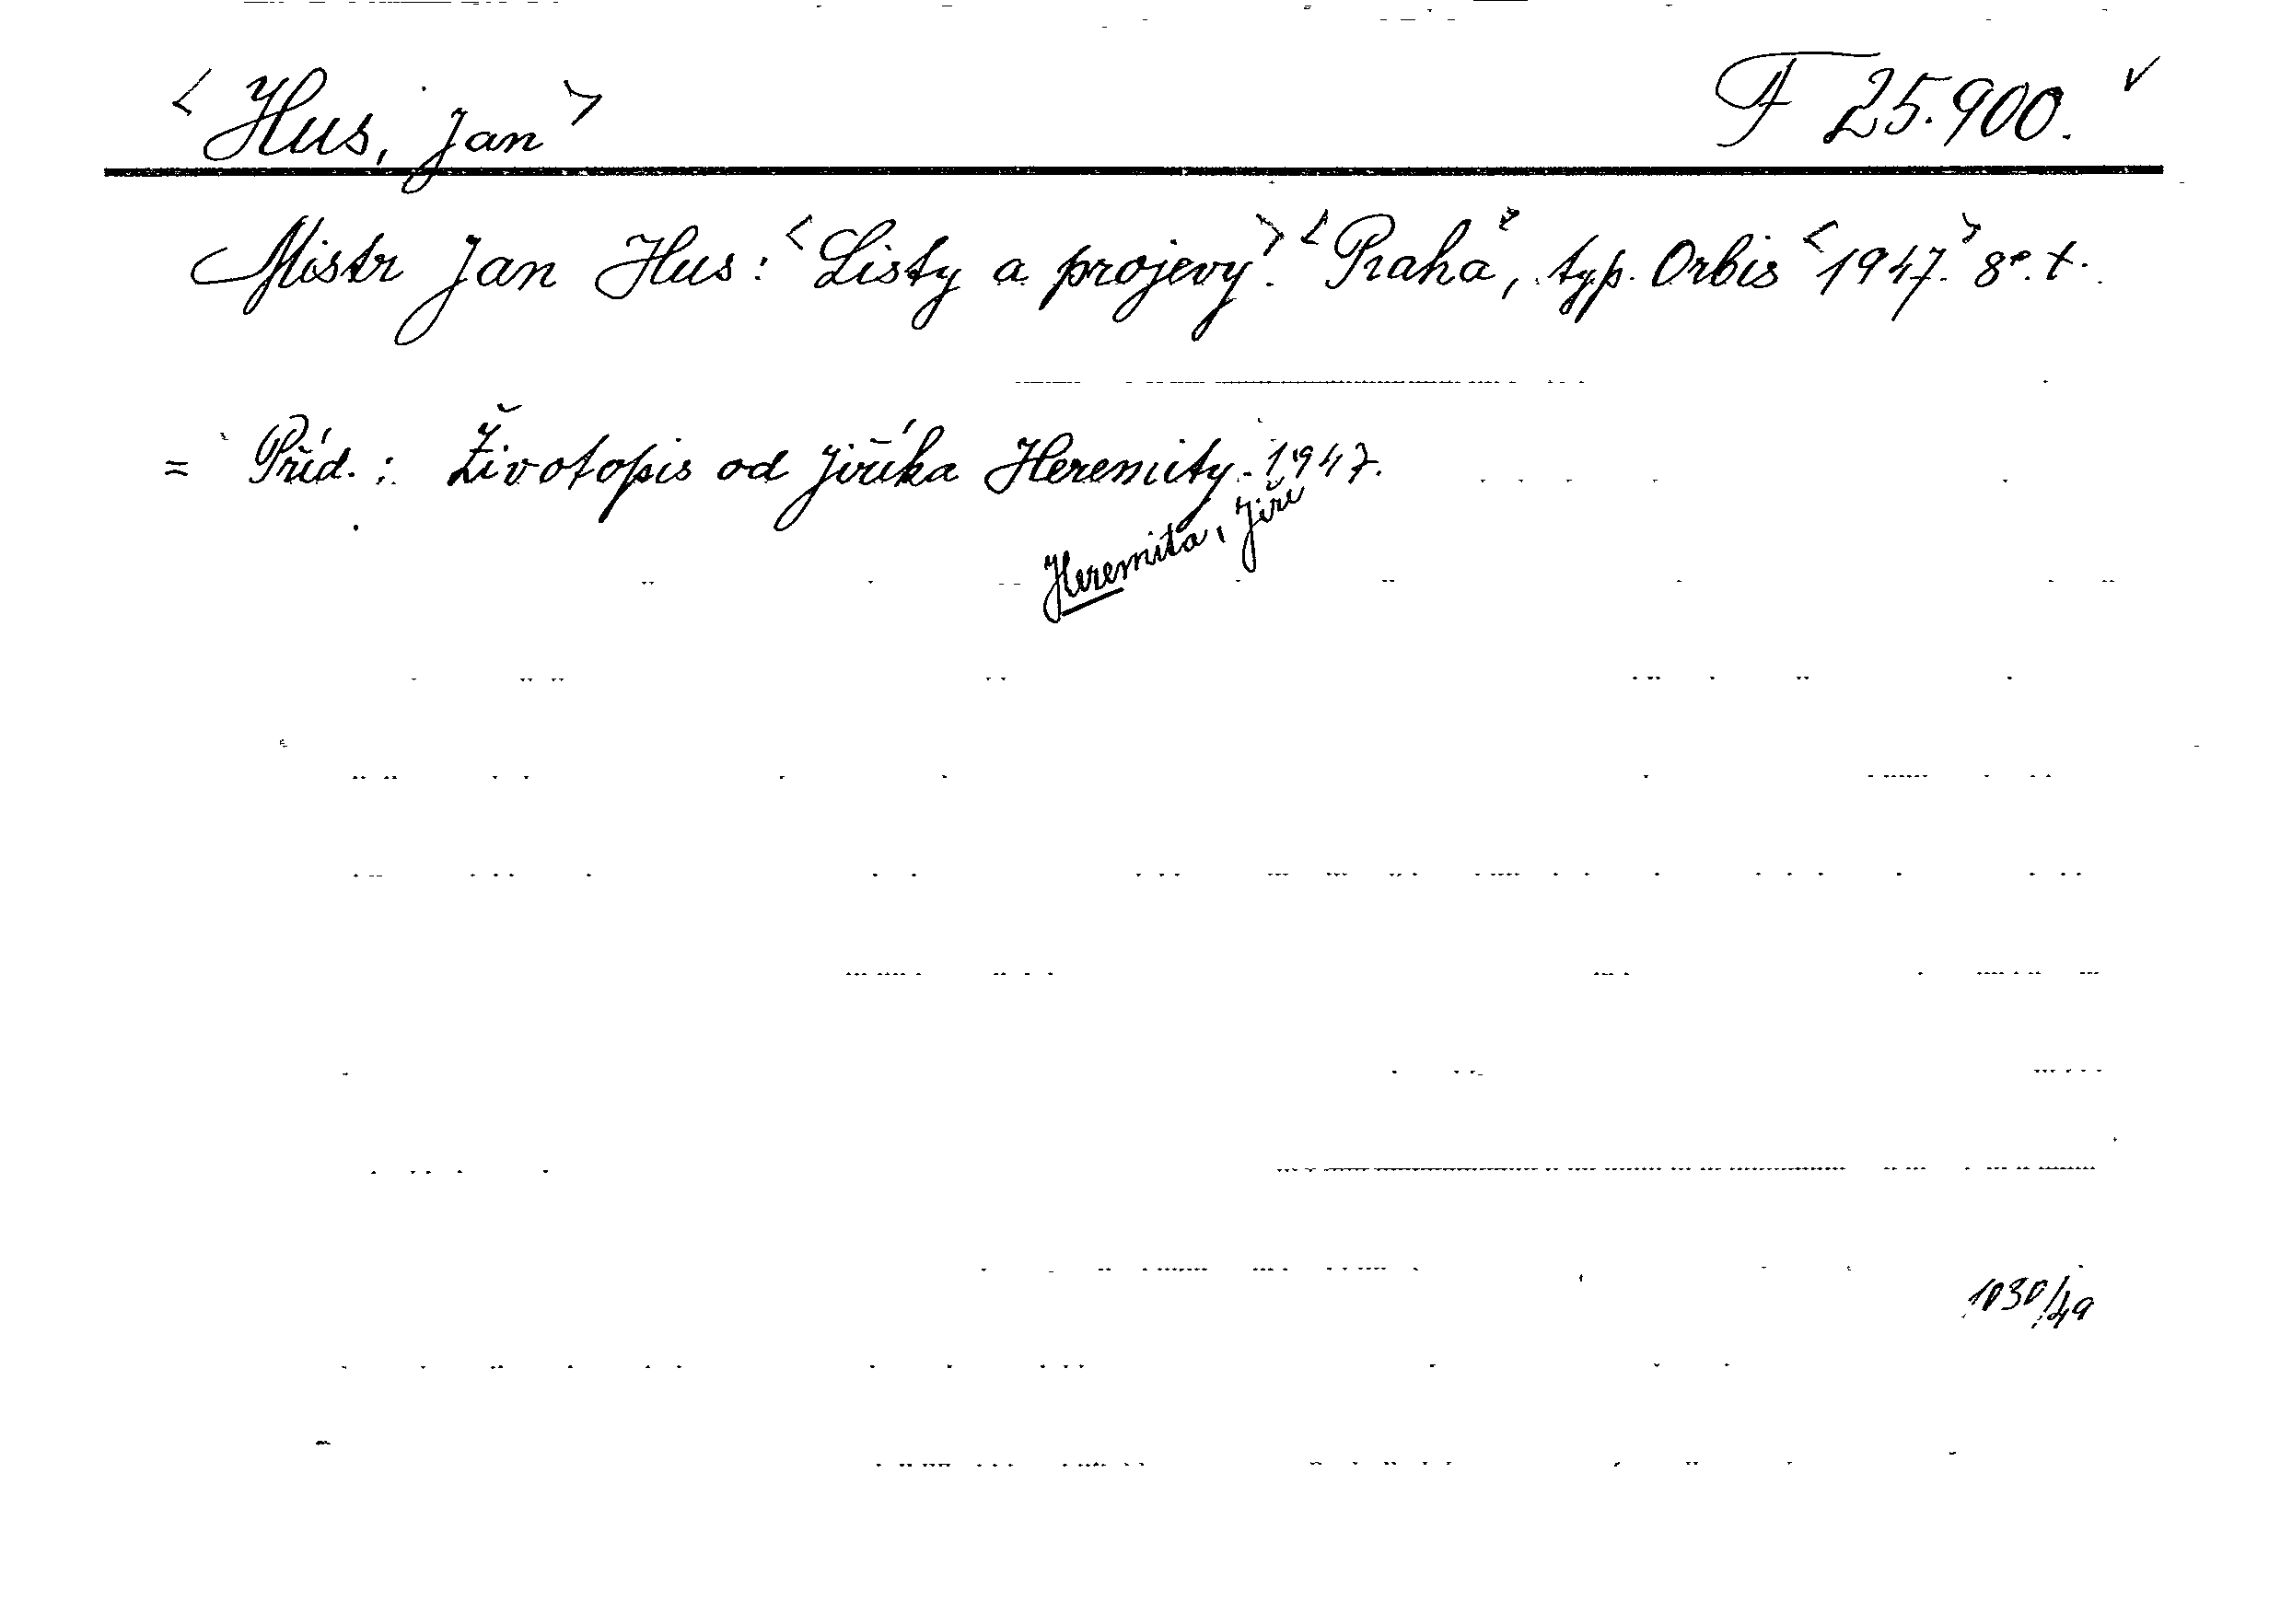 <Hus, Jan> F 25.900. ✓
Mistr Jan Hus: <Listy a projevy.> <Praha>, typ. Orbis <1947.> 8°. t.
= Příd.: Životopis od Jiříka Heremity. 1947.
Heremita, Jiří
1030/49